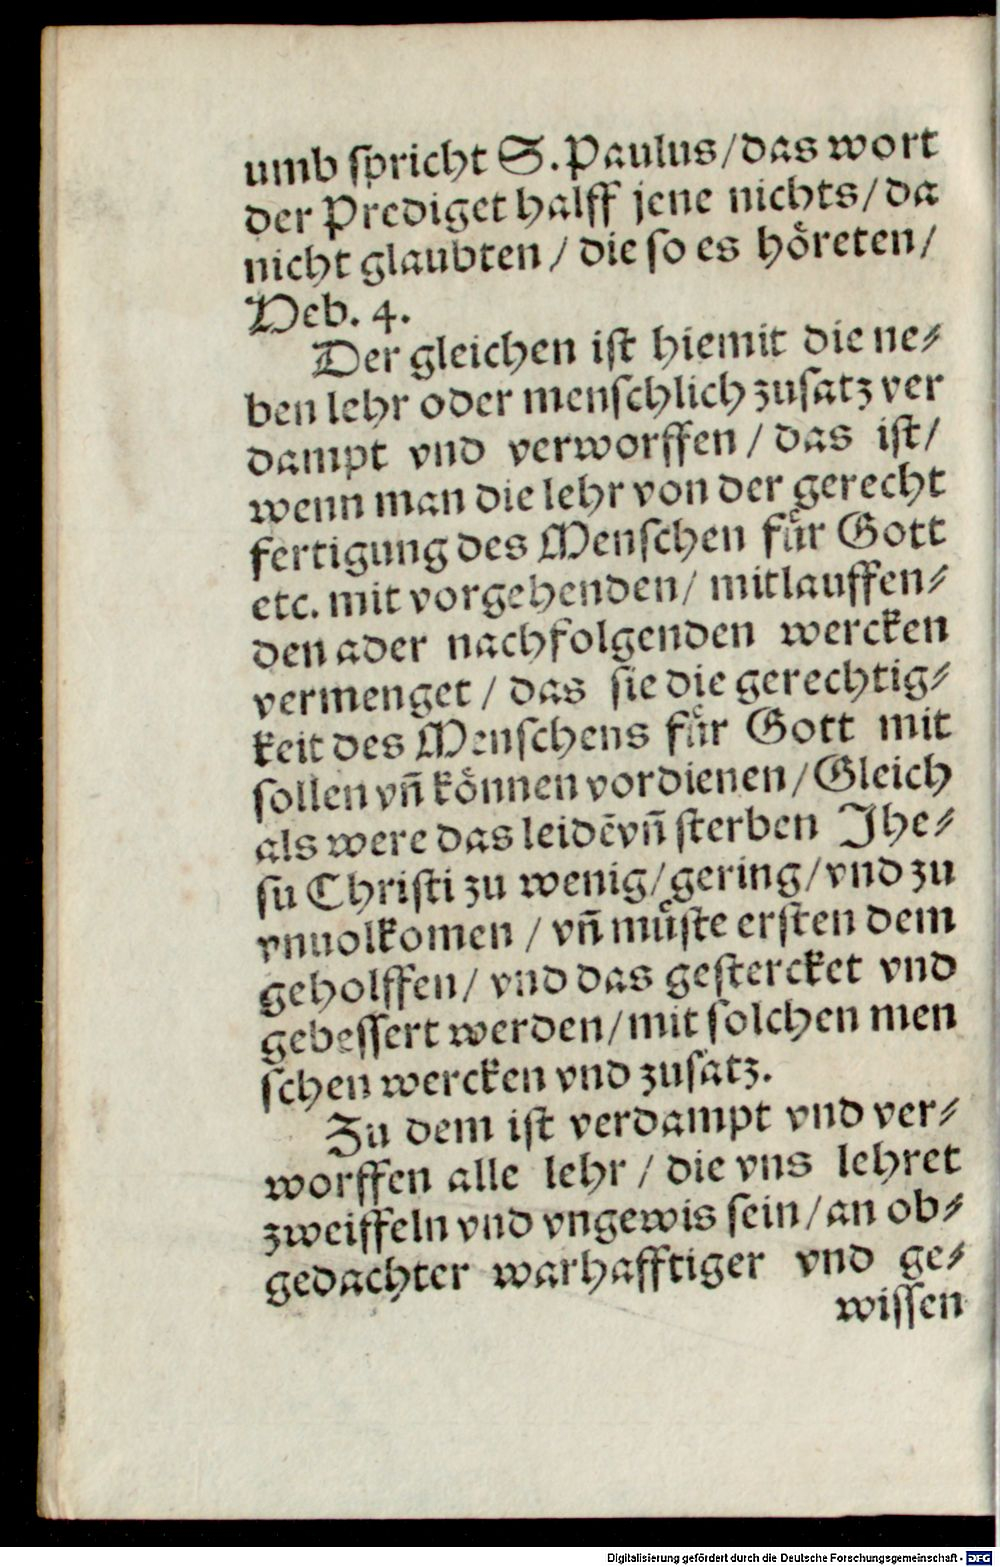 umb ſpricht S. Paulus/das wort
der Prediget halff jene nichts/da
nicht glaubten / die ſo es hoͤreten/
Heb. 4.
Der gleichen iſt hiemit die ne⸗
ben lehr oder menſchlich zuſatz ver
dampt vnd verworffen / das iſt/
wenn man die lehr von der gerecht
fertigung des Menſchen fuͤr Gott
etc. mit vorgehenden/ mitlauffen⸗
den ader nachfolgenden wercken
vermenget / das ſie die gerechtig⸗
keit des Menſchens fuͤr Gott mit
ſollen vñ koͤnnen vordienen/Gleich
als were das leidẽ vñ ſterben Jhe⸗
ſu Chriſti zu wenig/gering/vnd zu
vnuolkomen / vñ muͤſte erſten dem
geholffen/ vnd das geſtercket vnd
gebeſſert werden/mit ſolchen men
ſchen wercken vnd zuſatz.
Zu dem iſt verdampt vnd ver⸗
worffen alle lehr / die vns lehret
zweiffeln vnd vngewis ſein/an ob⸗
gedachter warhafftiger vnd ge⸗
wiſſen
Digitalisierung gefördert durch die Deutsche Forschungsgemeinschaft - DFG